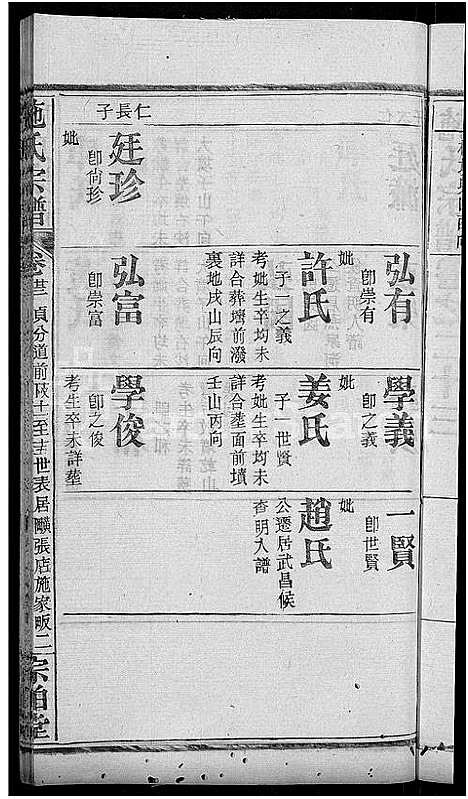 仁長子
廷珍
卽尙珍
妣
弘有
卽崇有
妣
許氏
子一之義
考妣生卒均未
詳合葬墳前潑
裏地戌山辰向
弘富
卽崇富
學義
卽之義
妣
姜氏
子一世賢
考妣生卒均未
詳合塟面前墳
壬山丙向
學俊
卽之俊
考生卒未詳塟
一賢
卽世賢
妣
趙氏
公遷居武昌候
查明入譜
施氏宗譜
卷廿三
貞分道前陔十一至十五世表居
張店施家畈二
宗伯堂